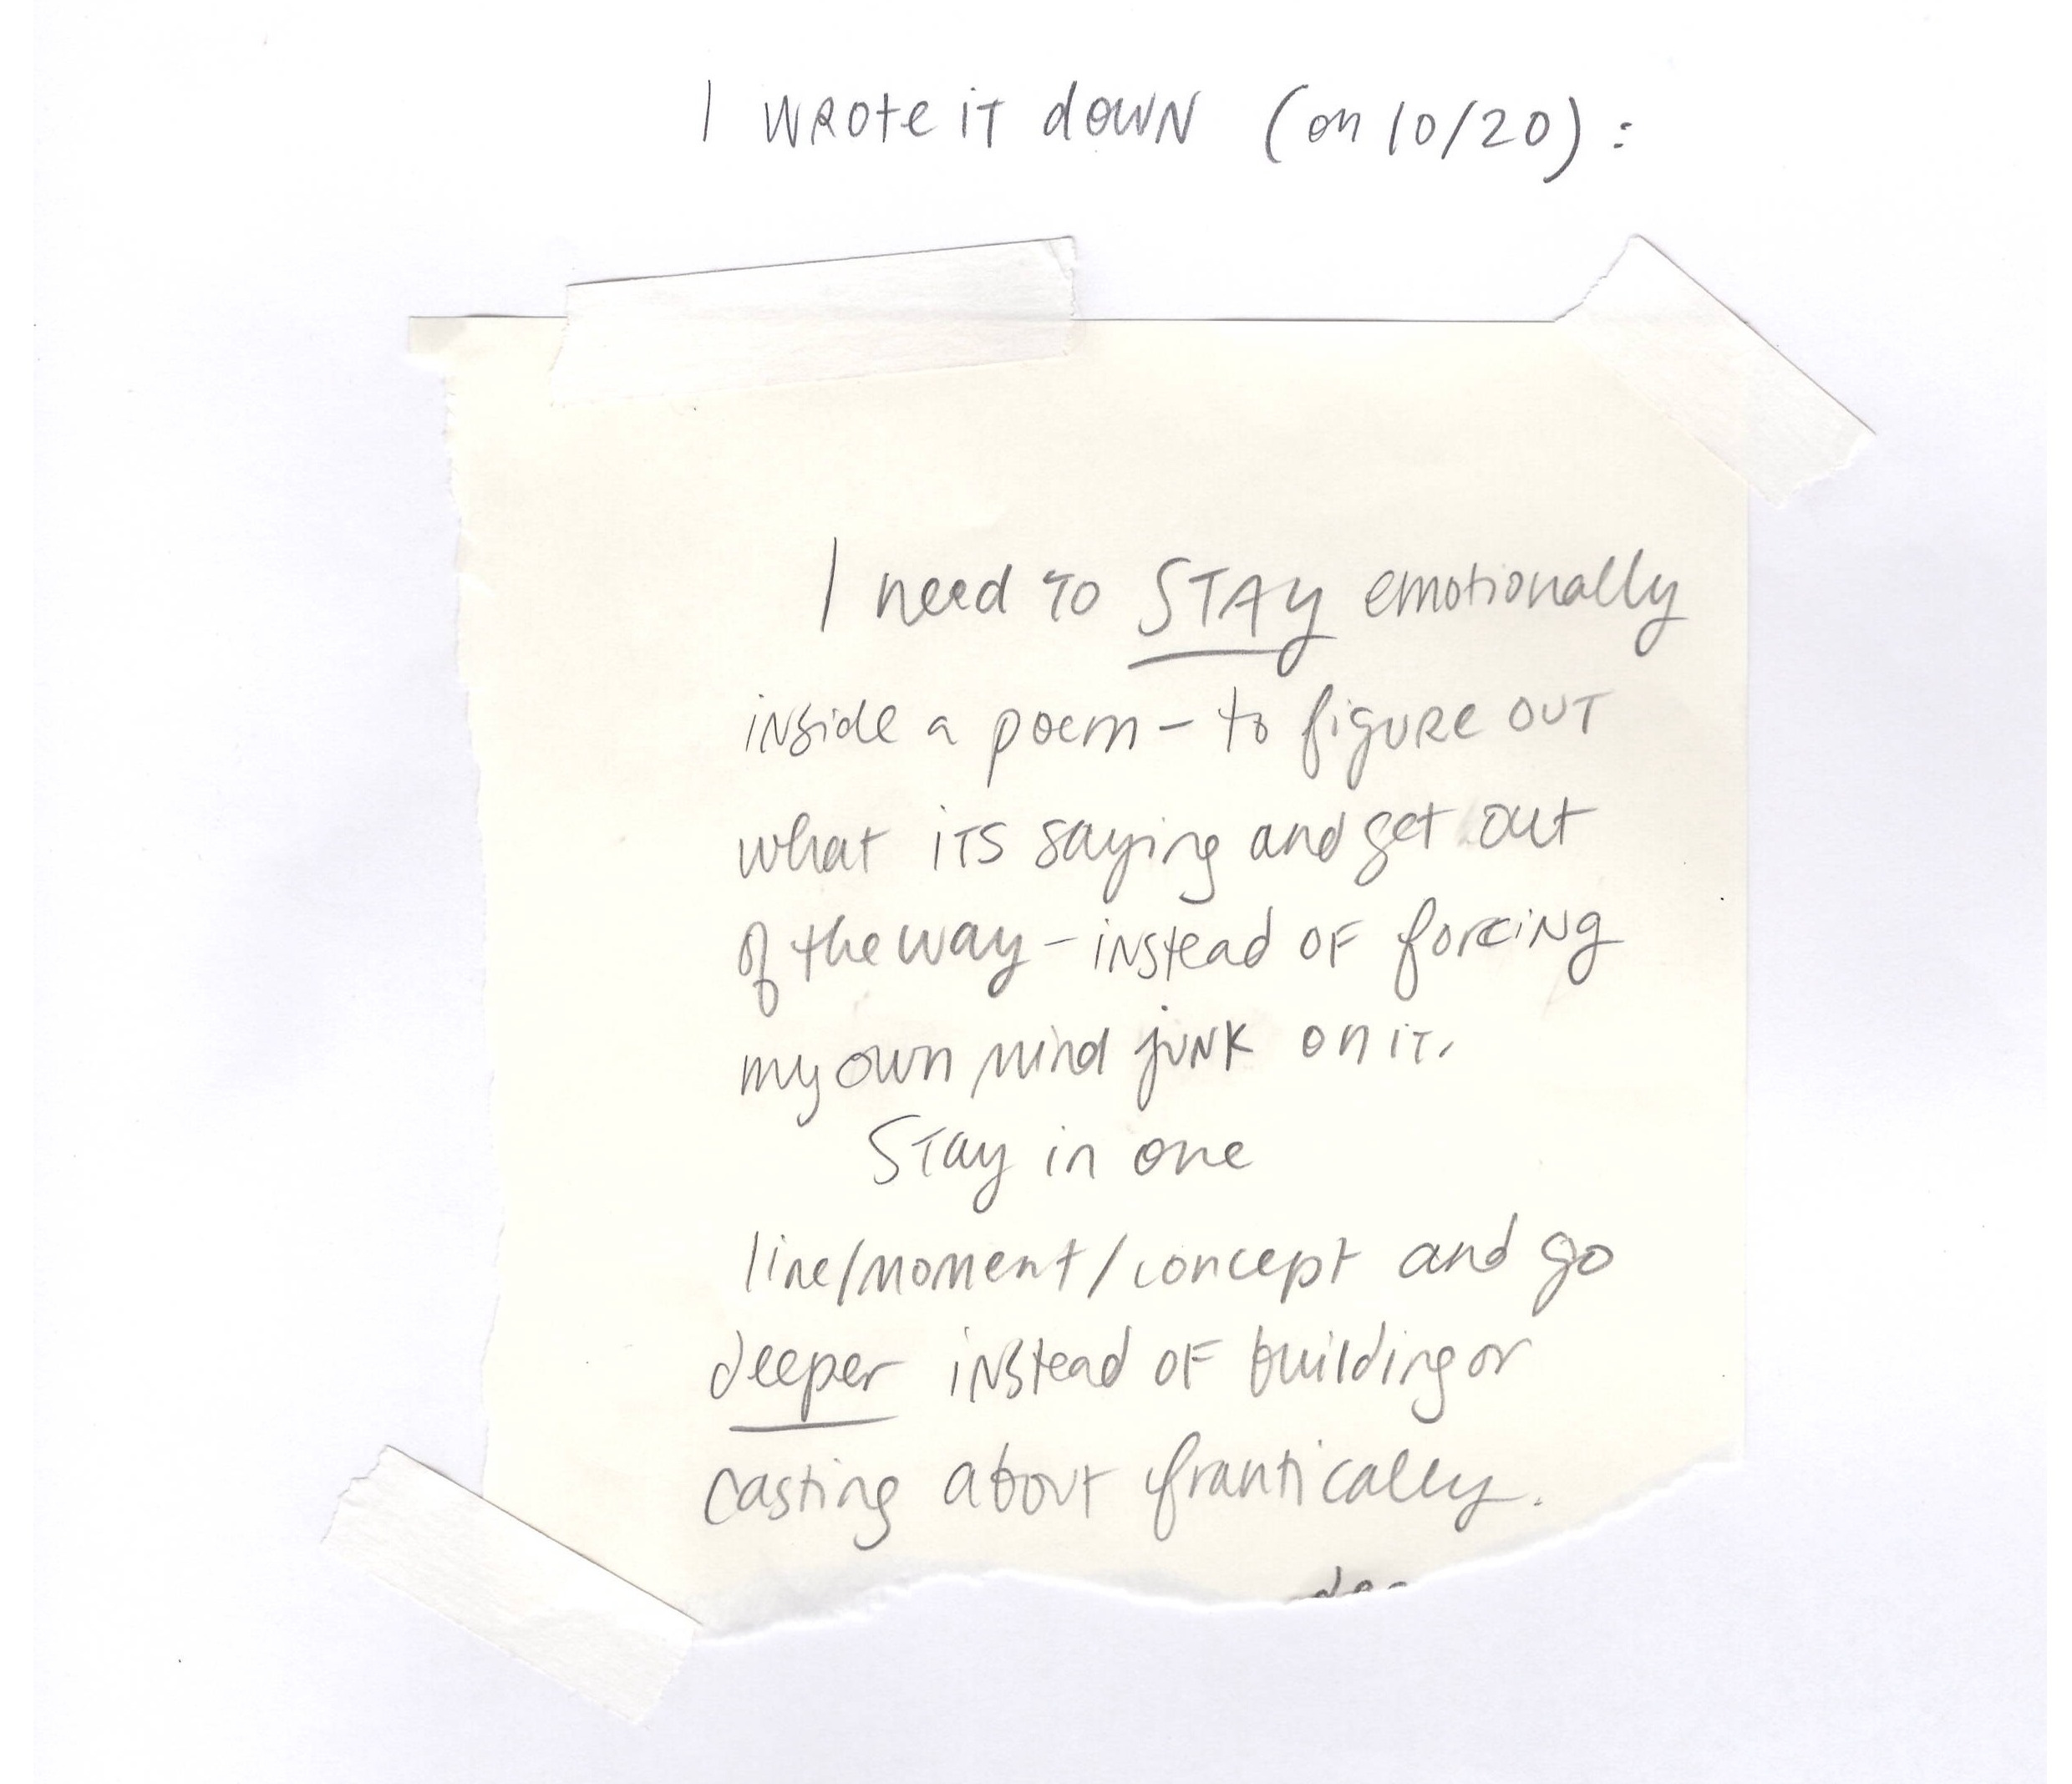 I wrote it down (on 10/20):
I need to STAY emotionally
inside a poem – to figure out
what its saying and get out
of the way – instead of forcing
my own mind junk on it.
Stay in one
line/moment/concept and go
deeper instead of building or
casting about frantically.